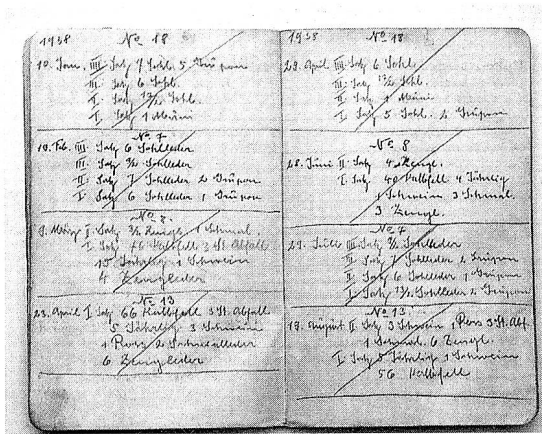 1938 No 18
10. Jan. III Satz 7 Sohl. 5 Grüpon
III. Satz 6 Sohl.
II. Satz 13/2 Sohl.
I. Satz 1
No 7
19. Feb. III. Satz 6 Sohlleder
III. Satz 3/2 Sohlleder
II. Satz 7 Sohlleder 2 Grüpon
I. Satz 6 Sohlleder 1 Grüpon
No 8.
9. März I. Satz 3/2 Zeugl. 1 Schmal.
I. Satz Kalbfell 3 St. Abfall
15 Jährlig 1 Schwein
4 Zeugleder
No 13
23. April I. Satz 66 Kalbfell 3 St. Abfall
5 Jährlig 3 Schwein
1 Ross 2 Schmalleder
6 Zeugleder
1938 No 18
29. April III. Satz 6 Sohl.
III. Satz 13/2 Sohl.
II. Satz 1
I. Satz 5 Sohl. 2 Grüpon
No 8
28. Juni II. Satz 4 Zeugl.
I. Satz 40 Kalbfell 4 Jährlig
1 Schwein 3 Schmal.
3 Zeugl.
No 7
29. Juli III. Satz 3/2 Sohlleder
III. Satz 7 Sohlleder 2 Grüpon
II. Satz 6 Sohlleder 1 Grüpon
I. Satz 13/2 Sohlleder 2 Grüpon
No 13.
19. August II. Satz 3 Schwein 1 Ross 3 St. Abf.
1 Schmal. 6 Zeugl.
I. Satz 8 Jährlig 1 Schwein
56 Kalbfell